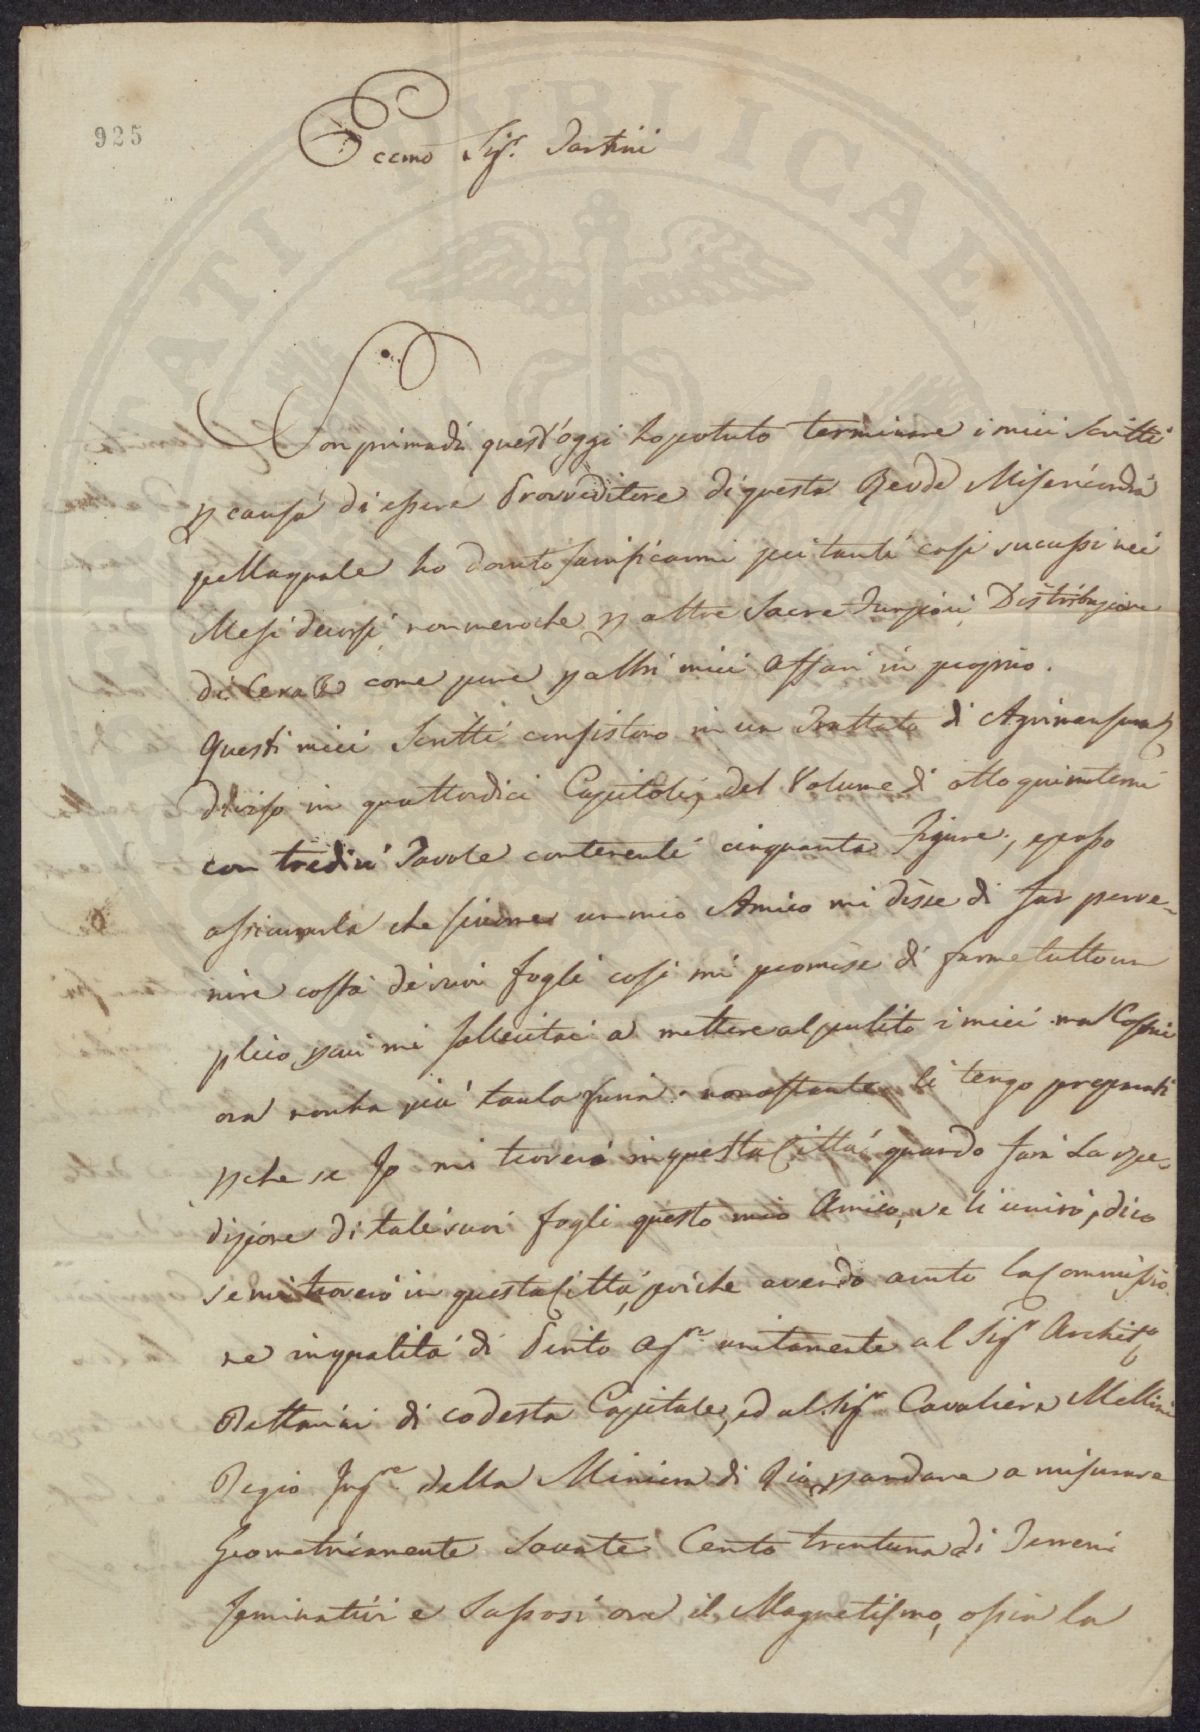 925
Eccmo Sigr. Tartini
Non prima di quest'oggi ho potuto terminare i miei Scritti
p causa di essere Provveditore di questa Rende Misericordia
pella quale ho dovuto sacrificarmi pei tanti casi sucussi nei
Mesi decorsi, nonmenoche p altre Sacre Funzioni, Distribuzione
di Cera &c come pure p altri miei Affari in proprio.
Questi miei Scritti consistono in un Trattato di Agrimensura,
diviso in quattordici Capitoli, del Volume di otto quinterni
con tredici Tavole contenenti cinquanta Figure, e posso
assicurarla che siccome un mio Amico mi disse di far perve-
nire costà de suoi fogli così mi promise di farne tutto un
plico, p cui mi sollecitai a mettere al pulito i miei ma
ora non ha più tanta furia: nonostante li tengo preparati
p che se Io mi troverò in questa Città quando farà la spe-
dizione di tali suoi fogli questo mio Amico, ve li unirò, dico
se mi troverò in questa Città, poiche avendo avuto la Commissio-
ne in qualità di Perito Agre. unitamente al Sigr Archito
Bettarini di codesta Capitale, ed al Sigr. Cavaliere Mellini
Regio Ingre. della Miniera di Rio, p andare a misurare
Geometricamente Savate Cento trentuna di Terreni
Seminativi e Sassosi ove il Magnetismo, ossia la